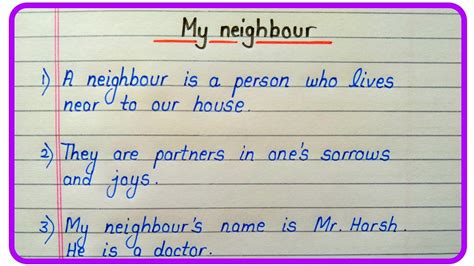 My neighbour
1) A neighbour is a person who lives
near to our house.
2) They are partners in one's sorrows
and joys.
3) My neighbour's name is Mr. Harsh.
He is a doctor.